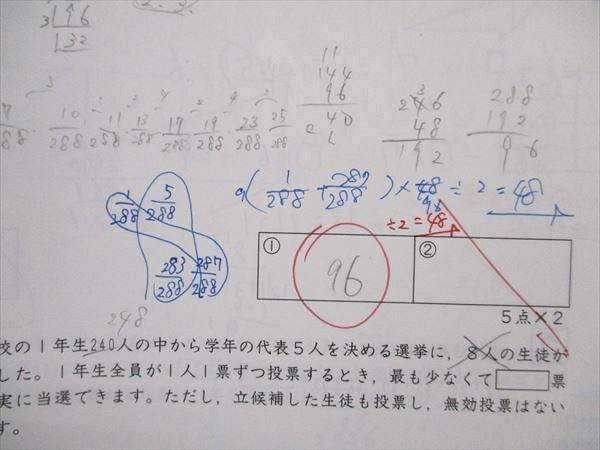 3)196
132
11
144
96
240
246
48
192
288
192
96
7/288 10/288 11/288 13/288 17/288 19/288 23/288 25/288
1/288 5/288
283/288 287/288
9(1/288 + 287/288) × 48 ÷ 2 = 48
÷2 = 48
① 96 ②
5点×2
248
校の1年生240人の中から学年の代表5人を決める選挙に，8人の生徒が
した。1年生全員が1人1票ずつ投票するとき，最も少なくて 票
実に当選できます。ただし，立候補した生徒も投票し，無効投票はない
す。